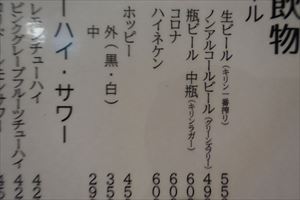 飲物
ール
生ビール(キリン一番搾り) 55
ノンアルコールビール(グリーンズフリー) 49
瓶ビール 中瓶(キリンラガー) 60
コロナ 60
ハイネケン 60
ホッピー 45
外(黒・白) 35
中 29
ーハイ・サワー
レモンチューハイ 42
ピンクグレープフルーツチューハイ 42
レモンサワー